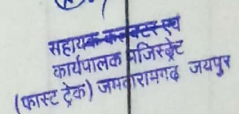 सहायक कलक्टर एवं
कार्यपालक मजिस्ट्रेट
(फास्ट ट्रेक) जमवारामगढ़ जयपुर